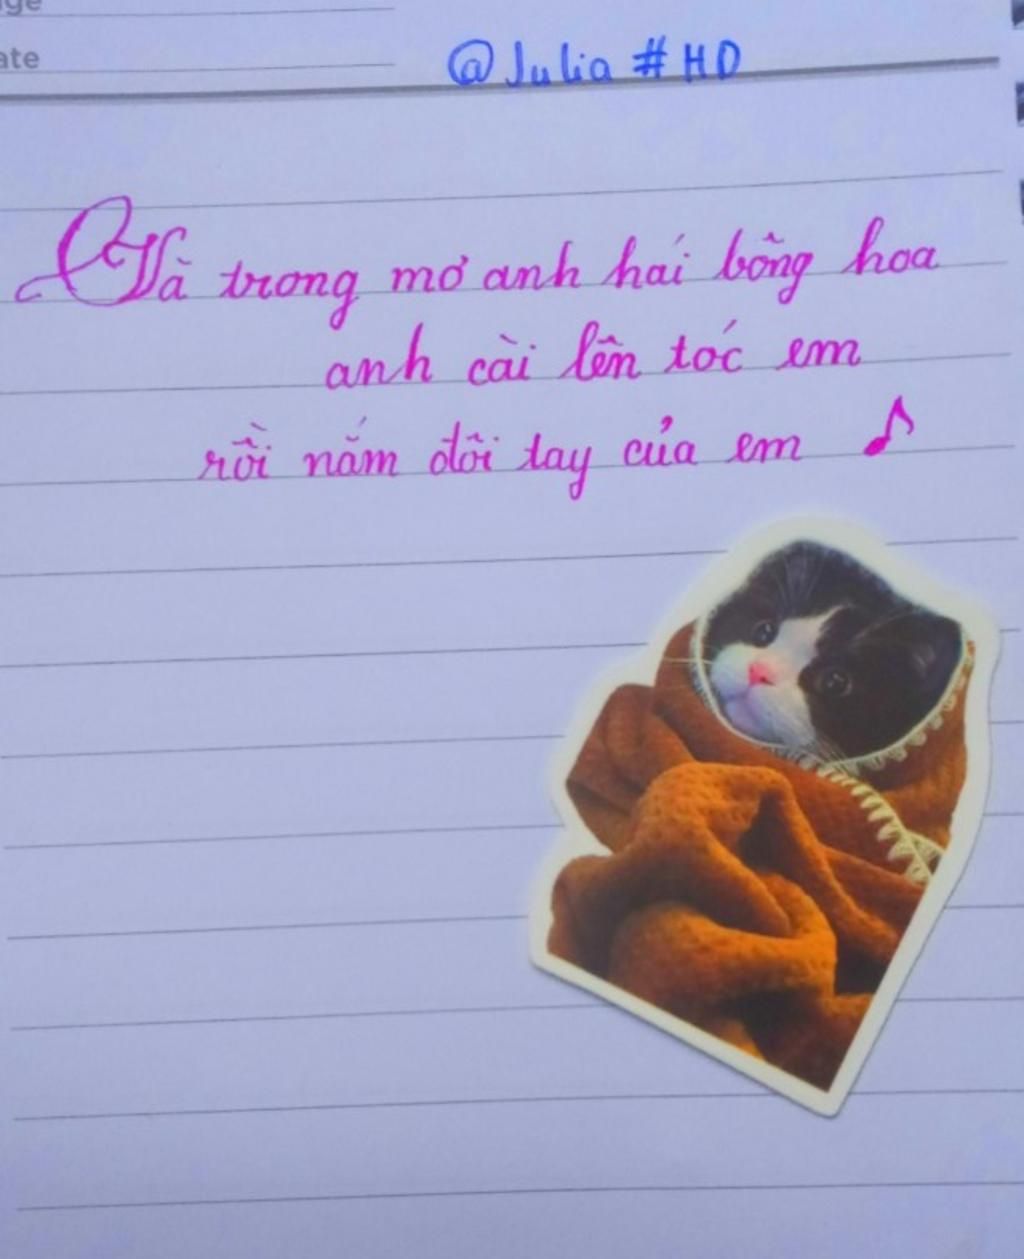 ate
@Julia #HD
Và trong mơ anh hái bông hoa
anh cài lên tóc em
rồi nắm đôi tay của em